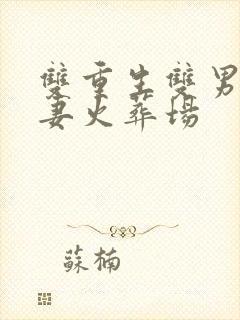 雙重生雙男
妻火葬場
蘇楠